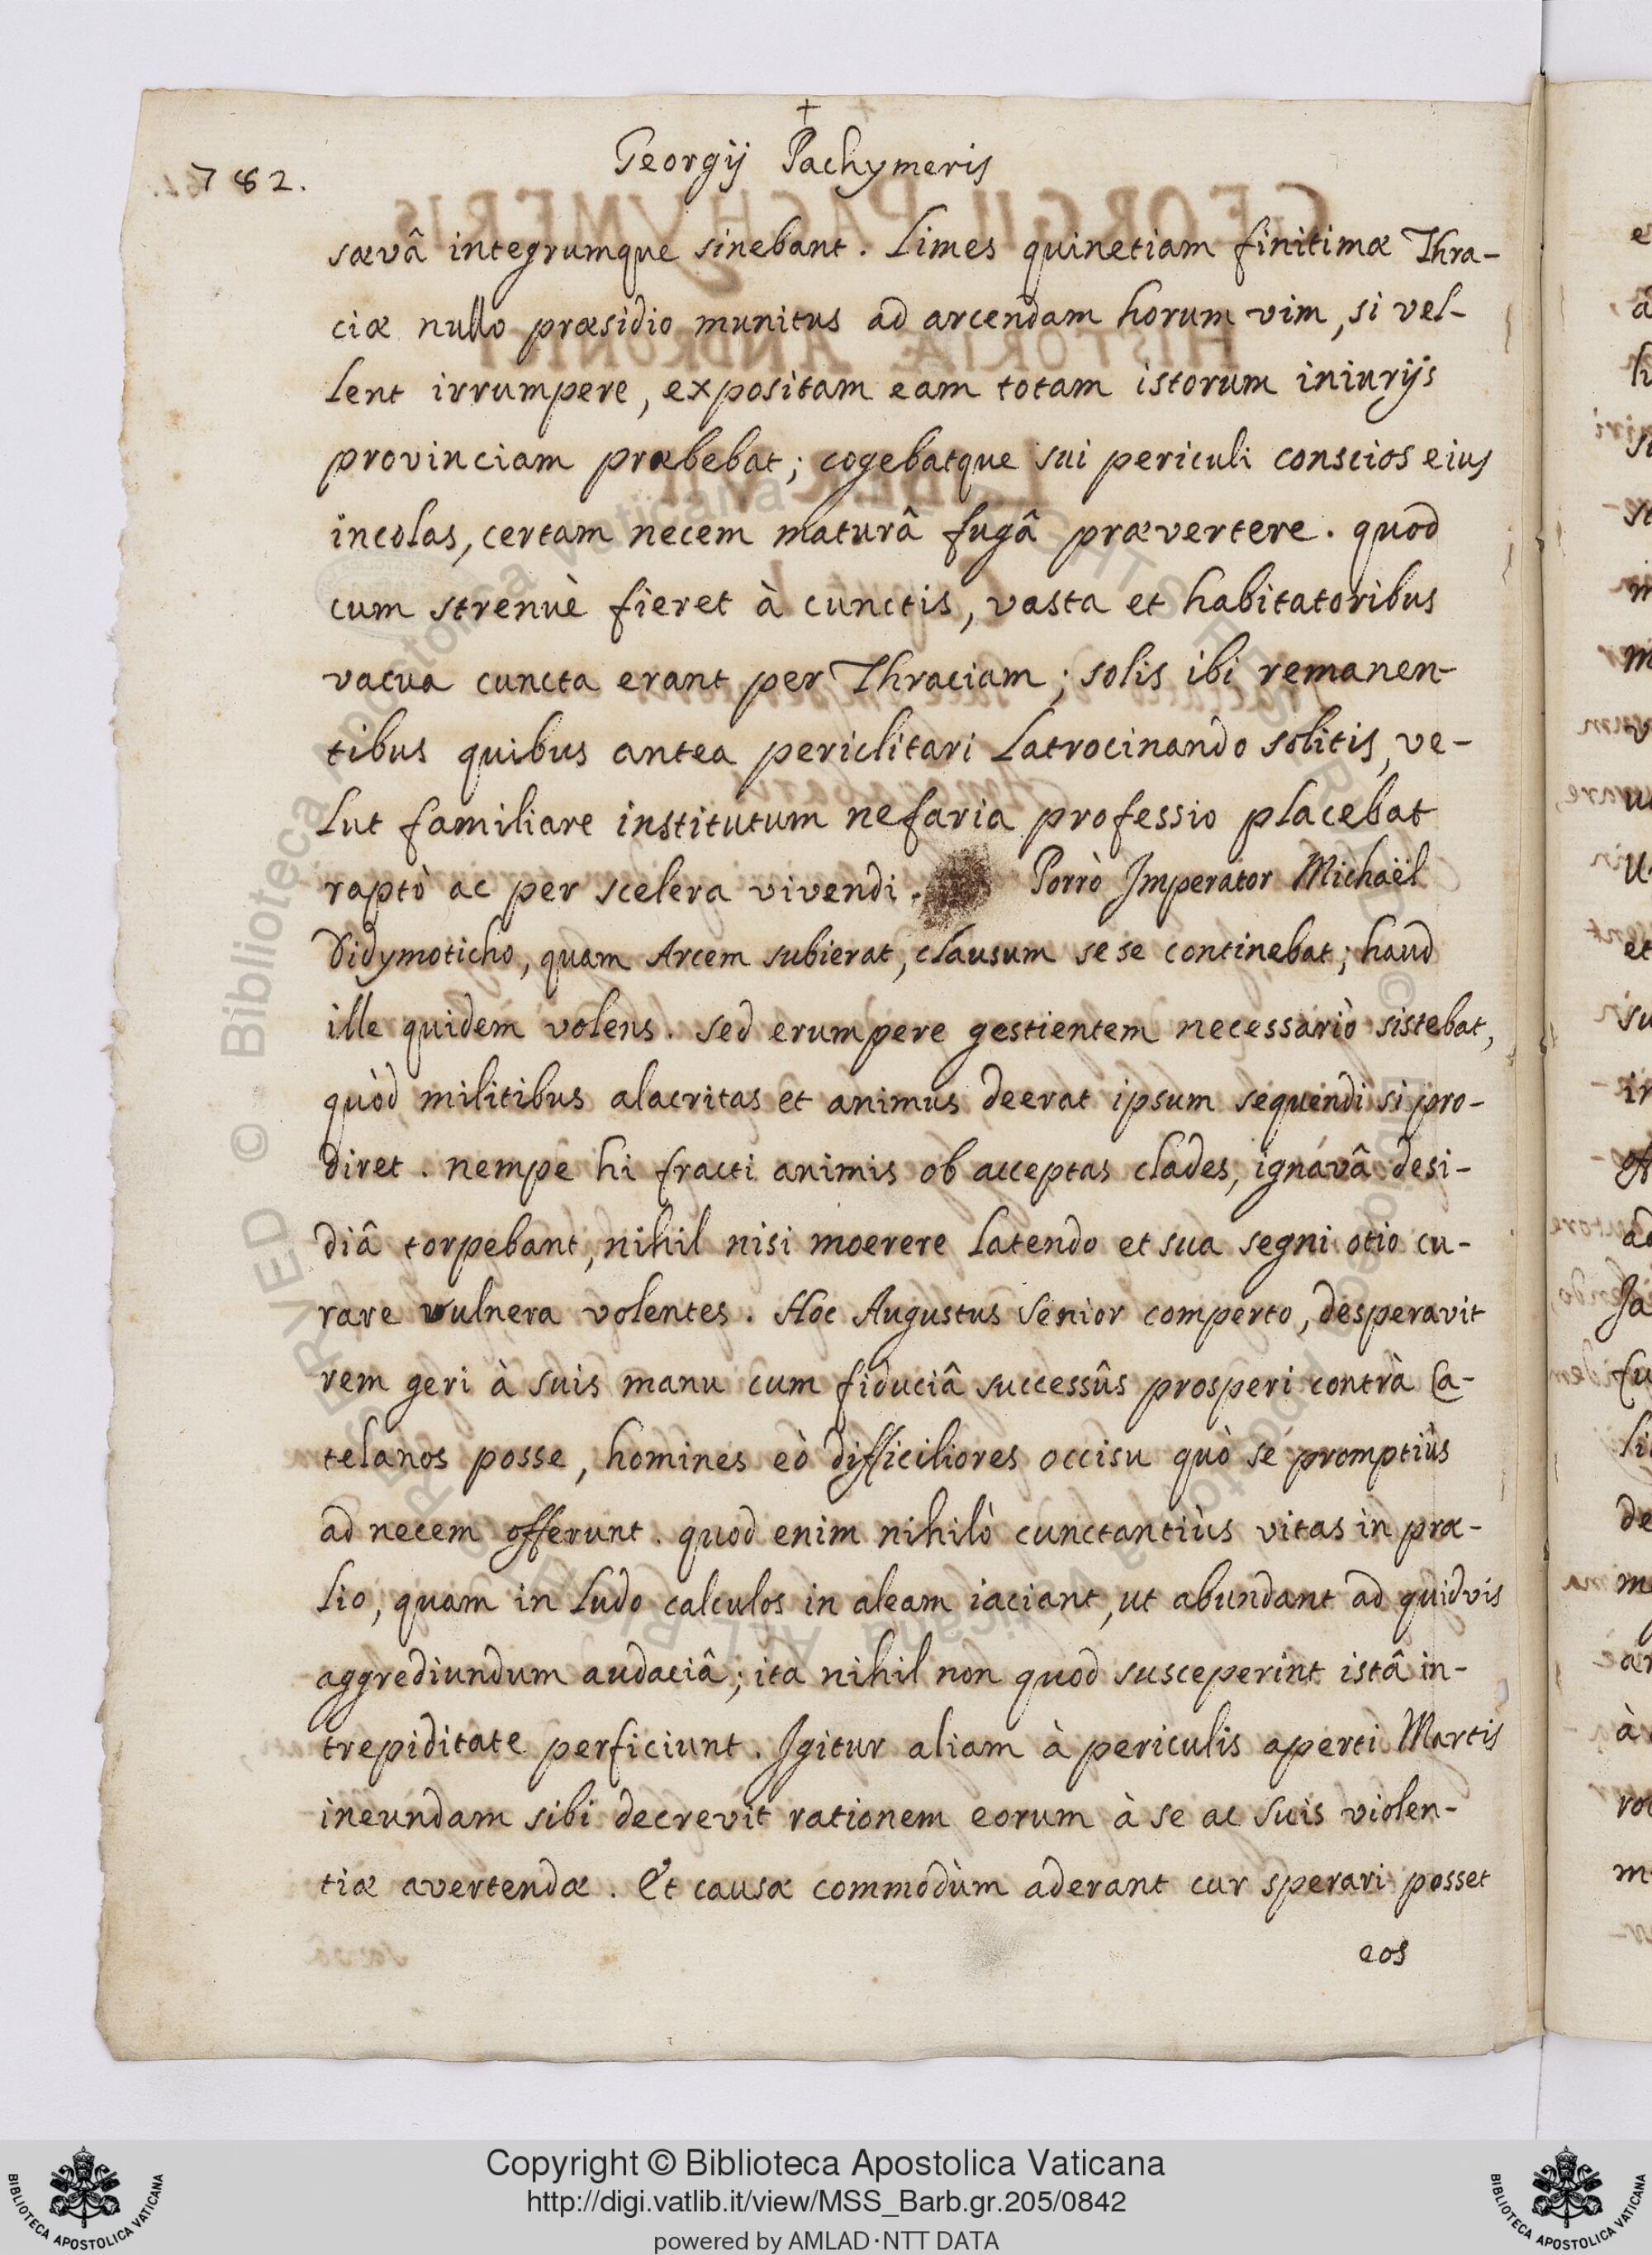 +
782.
Georgij Pachymeris
sævâ integrumque sinebant. Limes quinetiam finitimæ Thra-
ciæ nullo præsidio munitus ad arcendam horum vim, si vel-
lent irrumpere, expositam eam totam istorum iniurijs
provinciam præbebat; cogebatque sui periculi conscios eius
incolas, certam necem maturâ fugâ prævertere. quod
cum strenuè fieret à cunctis, vasta et habitatoribus
vacua cuncta erant per Thraciam; solis ibi remanen-
tibus quibus antea periclitari latrocinando solitis, ve-
lut familiare institutum nefaria professio placebat
raptò ac per scelera vivendi. Porrò Imperator Michaël
Didymoticho, quam Arcem subierat, clausum sese continebat; haud
ille quidem volens. sed erumpere gestientem necessariò sistebat,
quòd militibus alacritas et animus deerat ipsum sequendi si pro-
diret. nempe hi fracti animis ob acceptas clades, ignavâ desi-
diâ torpebant, nihil nisi moerere latendo et sua segni otio cu-
rare vulnera volentes. Hoc Augustus Senior comperto, desperavit
rem geri à suis manu cum fiduciâ successûs prosperi contrà Ca-
telanos posse, homines eò difficiliores occisu quò se promptiùs
ad necem offerunt. quod enim nihilò cunctantiùs vitas in præ-
lio, quam in ludo calculos in aleam iaciant, ut abundant ad quidvis
aggrediundum audaciâ; ita nihil non quod susceperint istâ in-
trepiditate perficiunt. Igitur aliam à periculis aperti Martis
ineundam sibi decrevit rationem eorum à se ac suis violen-
tiæ avertendæ. Et causæ commodùm aderant cur sperari posset
eos
Copyright © Biblioteca Apostolica Vaticana
http://digi.vatlib.it/view/MSS_Barb.gr.205/0842
powered by AMLAD·NTT DATA
BIBLIOTECA APOSTOLICA VATICANA
BIBLIOTECA APOSTOLICA VATICANA